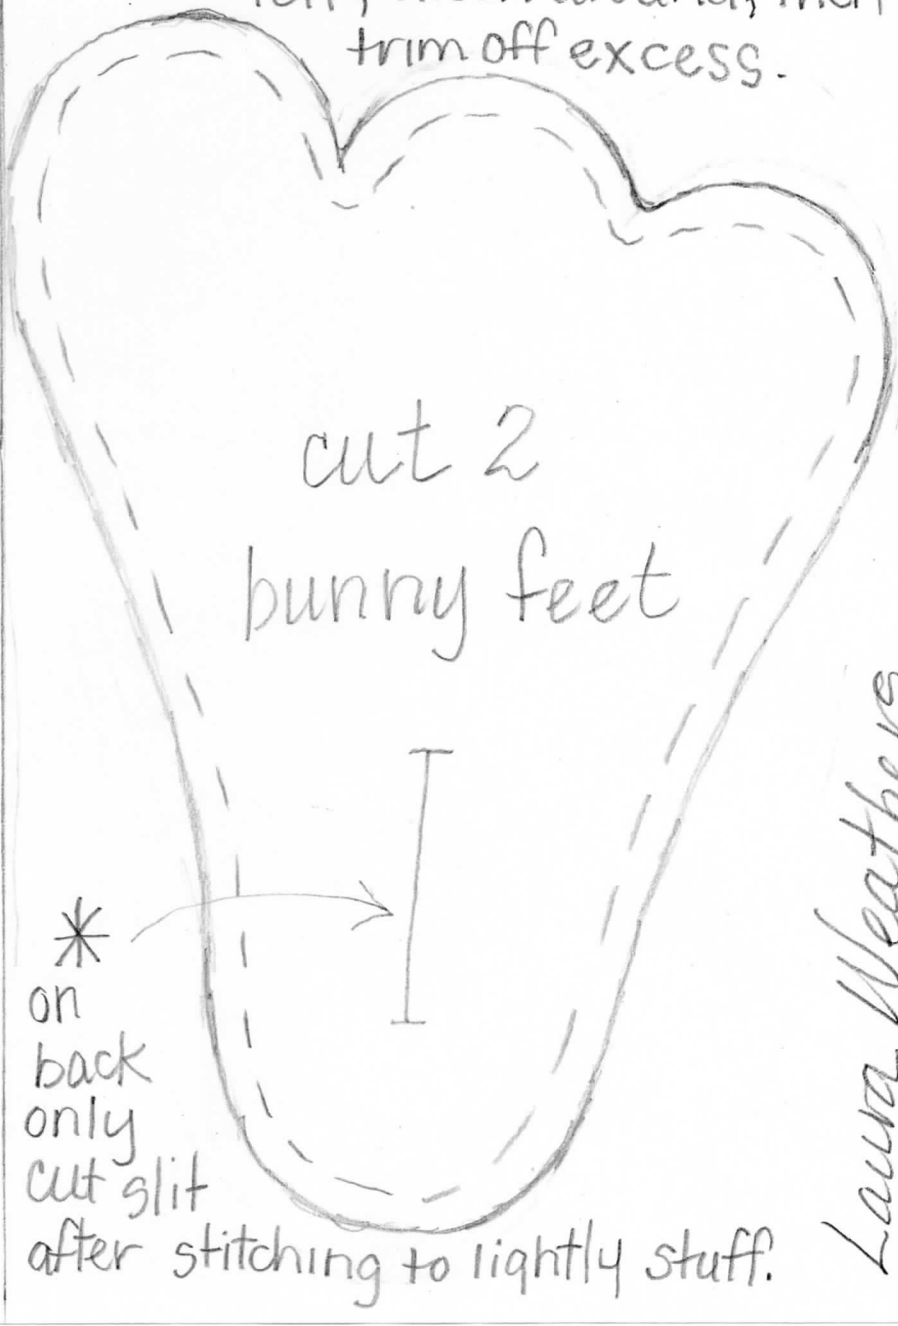 trim off excess.
cut 2
bunny feet
*
on
back
only
cut slit
after stitching to lightly stuff.
Laura Weathers